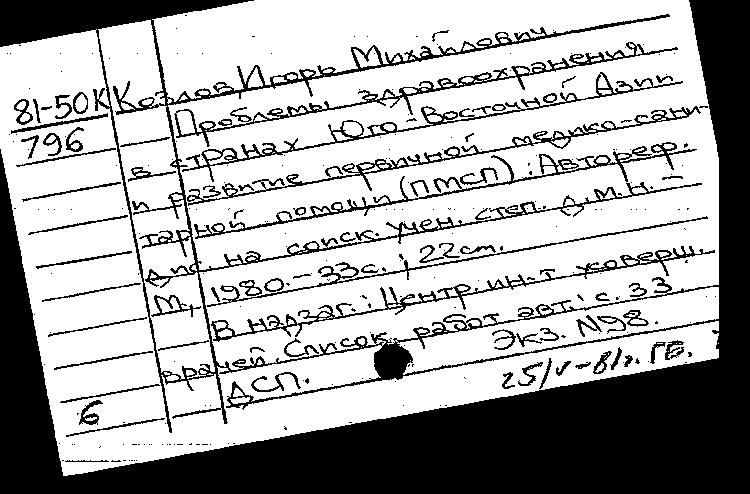 81-50К Козлов, Игорь Михайлович.
796 Проблемы здравоохранения
в странах Юго-Восточной Азии
и развитие первичной медико-сани-
тарной помощи (ПМСП): Автореф.
дис. на соиск. учен. степ. д.м.н. -
М., 1980. - 33с.; 22см.
В надзаг.: Центр. ин-т усоверш.
врачей. Список работ авт.: с. 33.
ДСП. Экз. N98.
6 25/V-81г. ГБ.